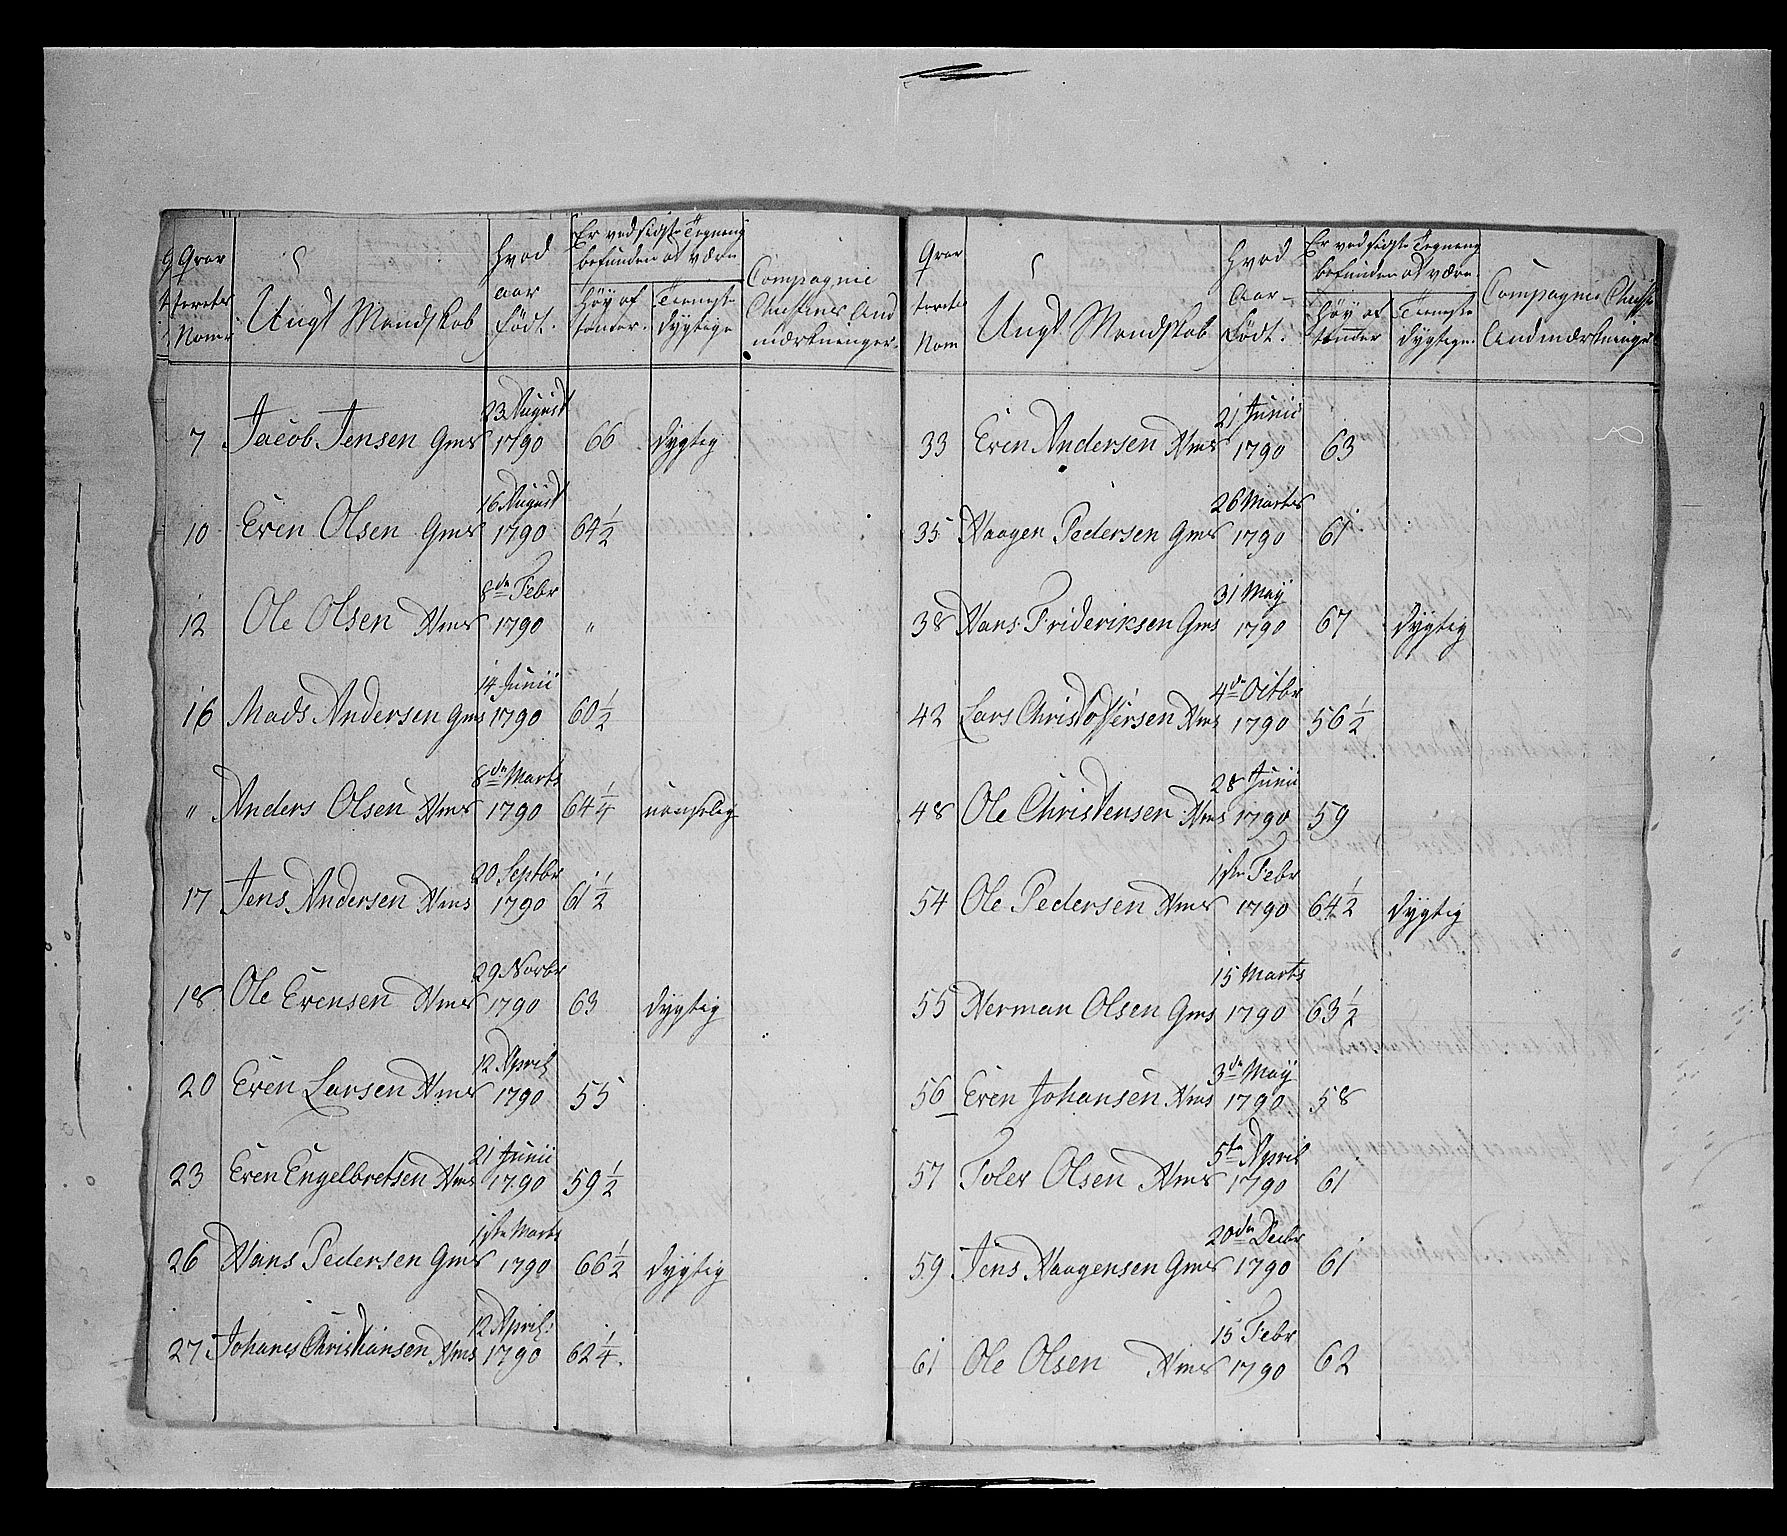 Qvar
teerets
Nom
Ungt Mandskab
Hvad
aar
Født.
Er ved sidste Tegning
befunden at være
Høy af
tommer.
Tieneste
dygtige
Compagnie
Chefens And
mærkninger.
7 Jacob Jensen Gms 23 August 1790 66 dygtig
10 Even Olsen Gms 16 August 1790 64 1/2
12 Ole Olsen Hms 8de Febr 1790 "
16 Mads Andersen Gms 14 Junii 1790 60 1/2
" Anders Olsen Hms 8de Marts 1790 64 1/4
17 Jens Andersen Hms 20 Septbr 1790 61 1/2
18 Ole Evensen Hms 29 Novbr 1790 63 dygtig
20 Even Larsen Hms 12 April 1790 55
23 Even Engelbretsen Hms 21 Junii 1790 59 1/2
26 Hans Pedersen Gms 1ste Marts 1790 66 1/2 dygtig
27 Johanes Christiansen Hms 12 April: 1790 62 1/4.
Qvar
teerets
Nom
Ungt Mandskab
Hvad
Aar
Født.
Er ved sidste Tegning
befunden at være
Høy af
tommer
Tieneste
dygtige.
Compagnie Chefens
Andmærkninger
33 Even Andersen Hms 21 Junii 1790 63
35 Haagen Pedersen Gms 26 Martes 1790 61
38 Hans Frideriksen Gms 31 Maÿ 1790 67 dygtig
42 Lars Christofersen Hms 4de Octbr 1790 56 1/2
48 Ole Christensen Hms 28 Junii 1790 59
54 Ole Pedersen Hms 1ste Febr 1790 64 1/2 dygtig
55 Herman Olsen Gms 15 Marts 1790 63 1/2
56 Even Johansen Hms 3de Maÿ 1790 58
57 Tolev Olsen Hms 5te April 1790 61
59 Jens Haagensen Gms 20de Decbr 1790 61
61 Ole Olsen Hms 15 Febr 1790 62